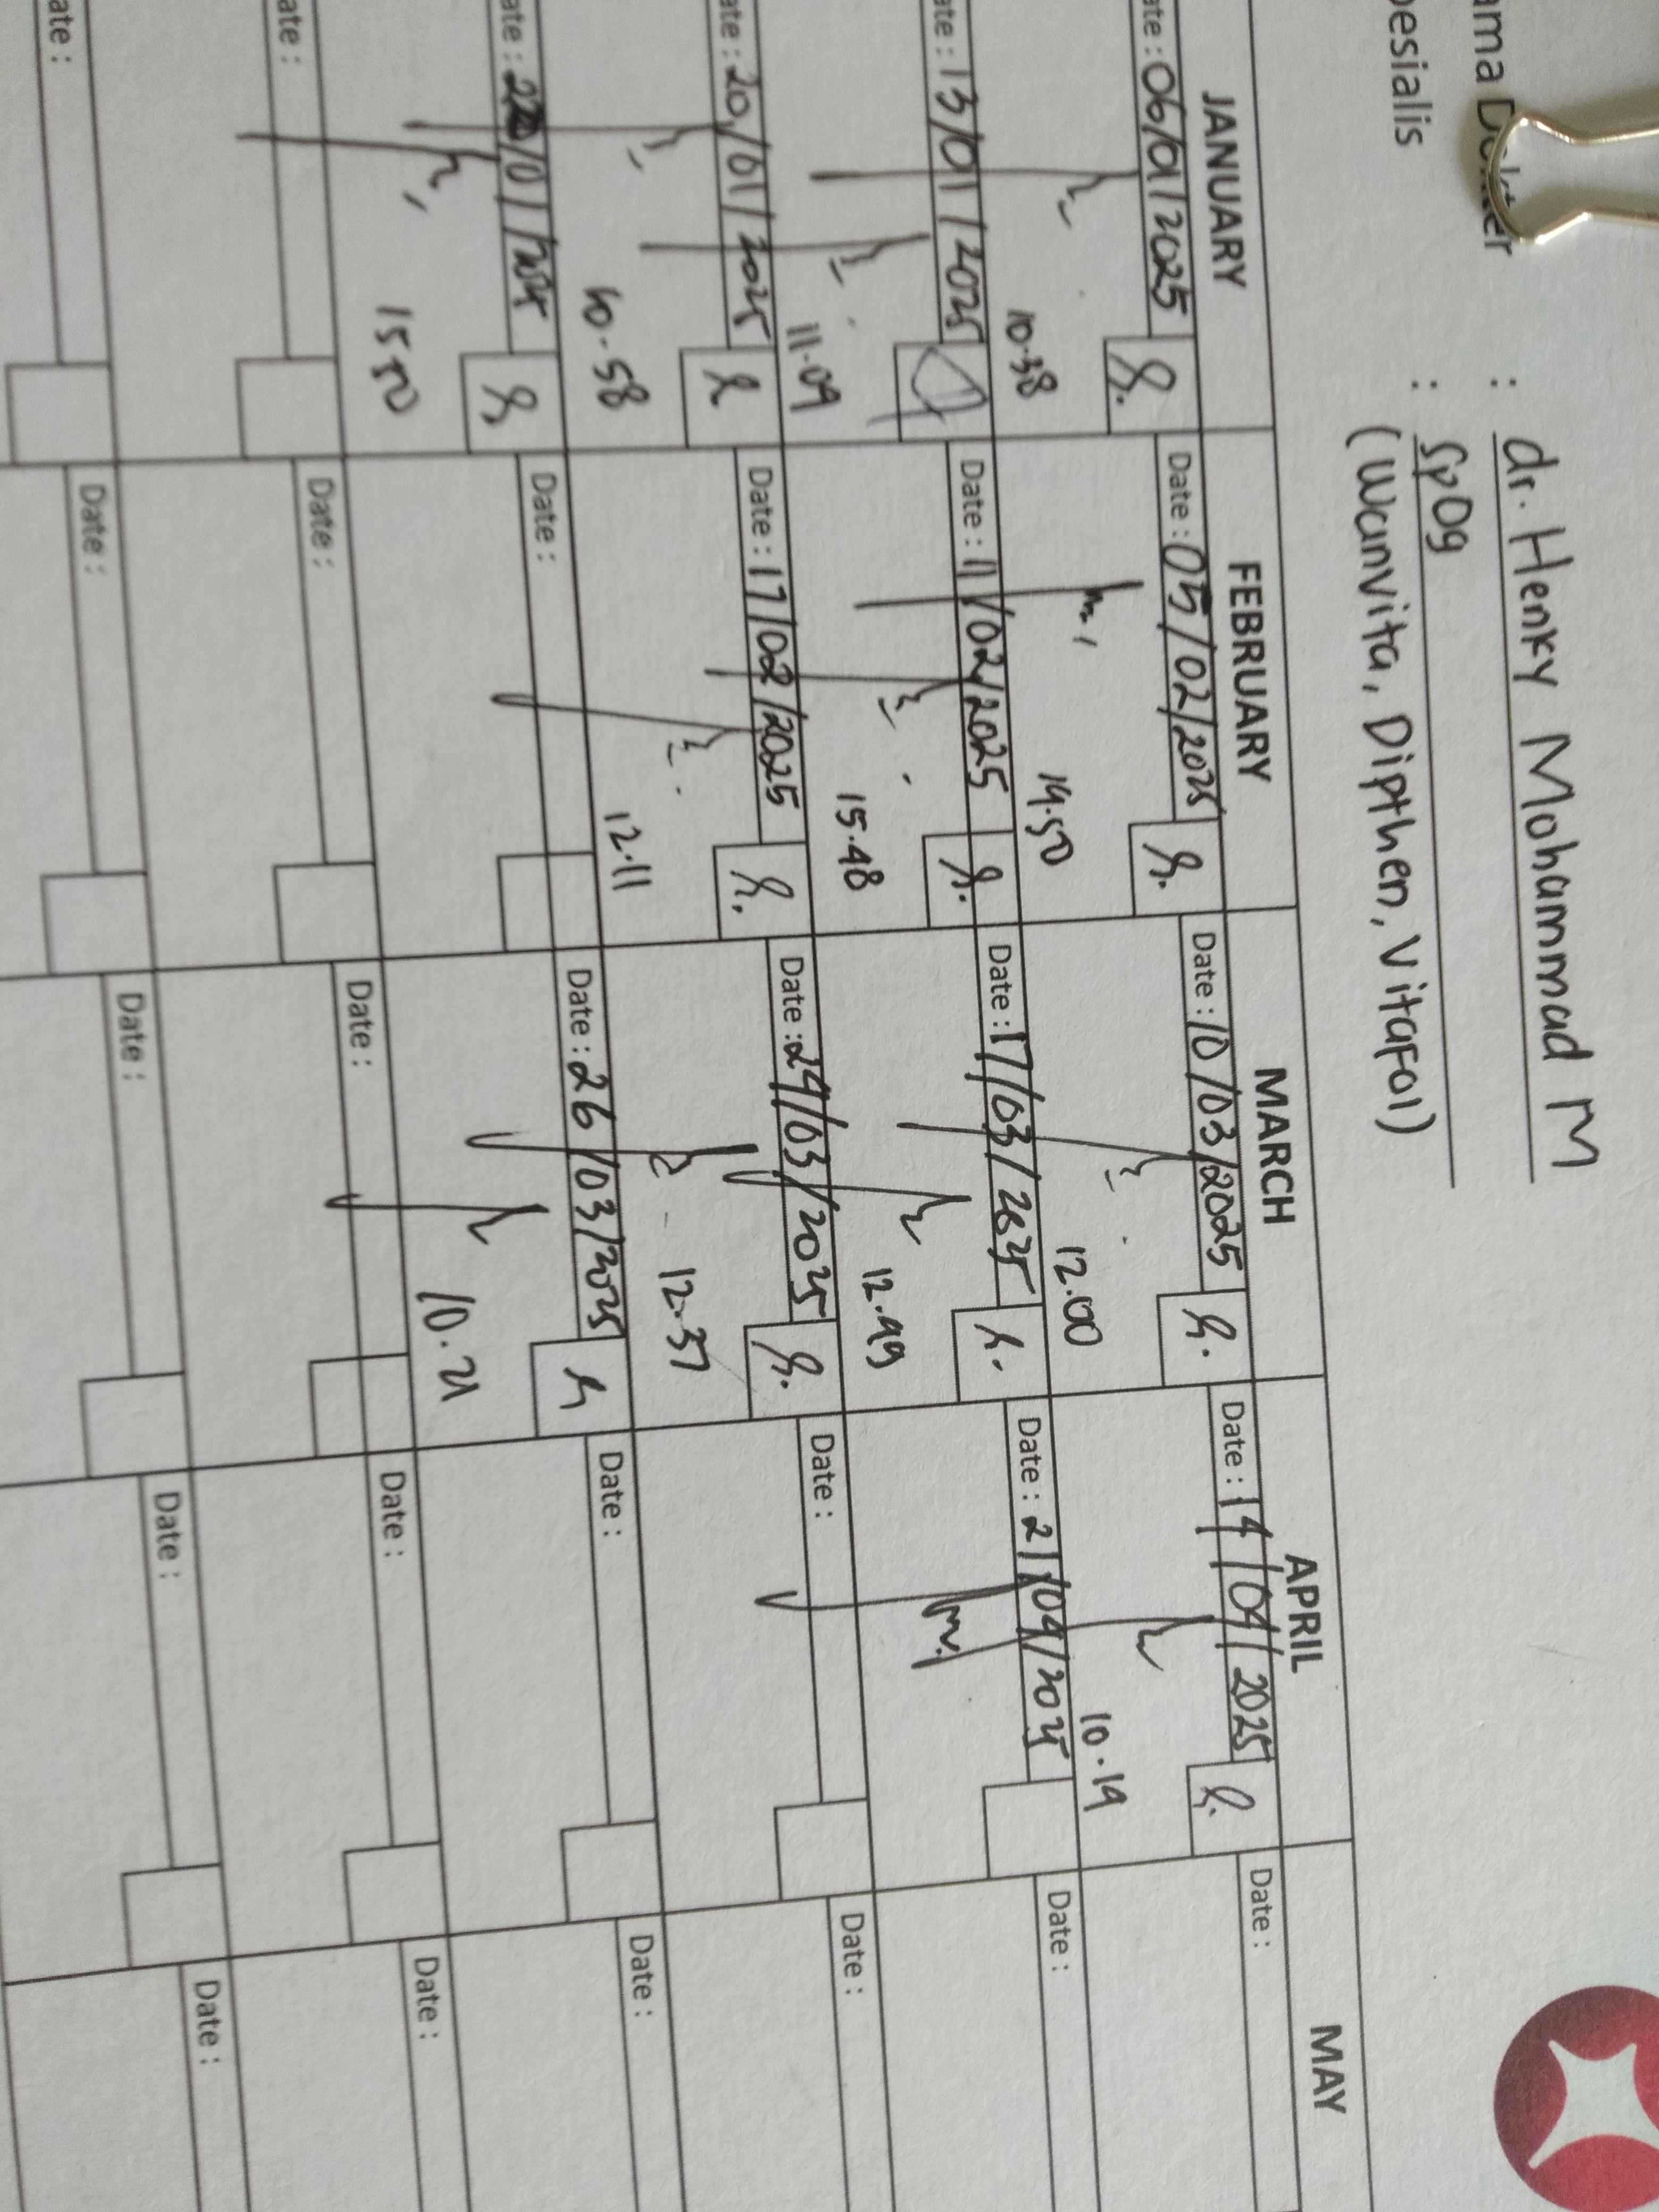 ama Dokter : dr. Henky Mohammad M
pesialis : SpOg
(Wanvita, Dipthen, Vitafol)
JANUARY FEBRUARY MARCH APRIL MAY
ate : 06/01/2025 Date : 05/02/2025 Date : 10/03/2025 Date : 14/04/2025 Date :
10.38 14.50 12.00 10.19
ate : 13/01/2025 Date : 11/02/2025 Date : 17/03/2025 Date : 21/04/2025 Date :
11.09 15.48 12.49
ate : 20/01/2025 Date : 17/02/2025 Date : 24/03/2025 Date : Date :
10.58 12.11 12.37
ate : /01/2025 Date : Date : 26/03/2025 Date : Date :
15.50 10.21
ate : Date : Date : Date : Date :
ate : Date : Date : Date : Date :